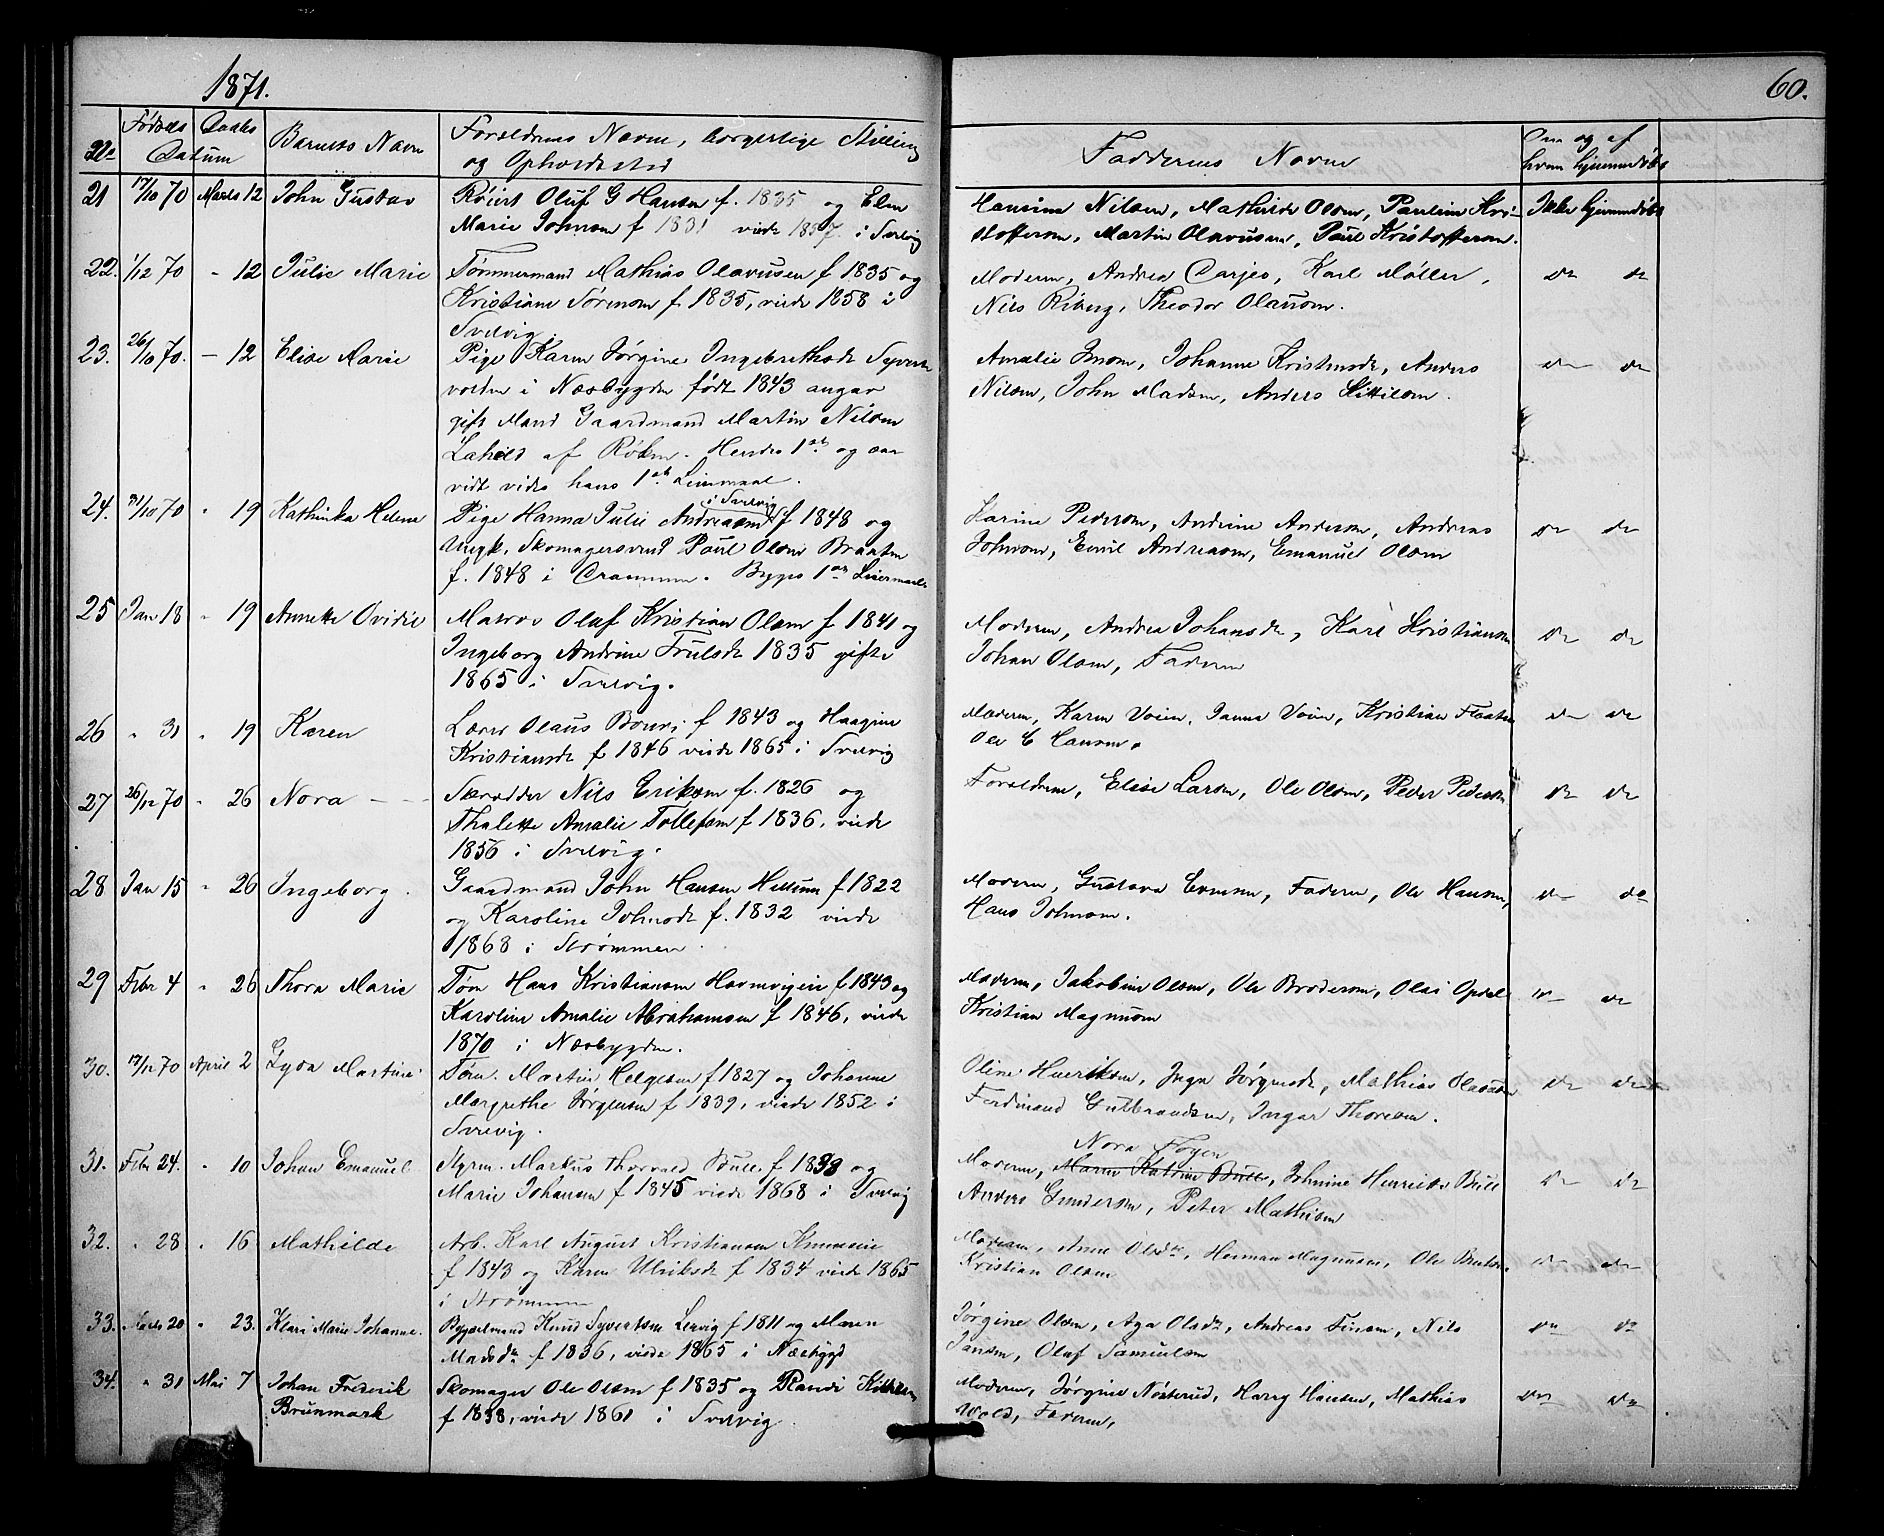 1871.
60.
No Fødsels Daabs Datum Barnets Navn Forældrenes Navne, borgerlige Stilling og Opholdssted Faddernes Navne Om og af hvem hjemmedøbt
21 17/10 70 Marts 12 John Gustav Oluf G Hansen f. 1835 og Elen Hansine Nilsen, Mathilde Olsen, Pauline Kri- Ikke hjemmedøbt
Marie Johnsen f 1831 viede 1857 i Svelvig stoffersen, Martin Olavusen, Paul Kristoffersen.
22. 1/12 70 " 12 Julie Marie Tømmermand Mathias Olavusen f 1835 og Moderen, Andrea Carjes, Karl Møller, do do
Kristiane Sørensen f 1835, viede 1858 i Nils Riberg, Theodor Olausen.
Svelvig
23. 26/10 70. — 12 Elise Marie Pige Karen Jørgine Ingebrethsdr Syverts Amalie Jensen, Johanne Kristensdr, Anders do do
volden i Næsbygden født 1843 angav Nilsen, John Madsen, Anders Kittilsen.
gift Mand Gaardmand Martin Nilsen
af Røken. Hendes 1ste og saa
vidt vides hans 1ste Leiermaal.
i Svelvig
24. 31/10 70 " 19 Kathinka Helene Pige Hanna Julie Andreasen f 1848 og Karine Pedersen, Andrine Andersen, Andreas do do
Ungk. Skomagersvend Paul Olsen Braaten Johnsen, Emil Andreasen, Emanuel Olsen
f. 1848 i Drammen. Begges 1ste Leiermaal
25 Jan 18 " 19 Annette Ovidie Matros Oluf Kristian Olsen f 1841 og Moderen, Andrea Johansdr, Karl Kristiansen do do
Ingeborg Andrine Trulsdr 1835 gifte Johan Olsen, Faderen
1865 i Svelvig.
26 " 31 " 19 Karen Olaus f 1843 og Haagine Moderen, Karen Voien, Janna Voien, Kristian Floaten do do
Kristiansdr f 1846 viede 1865 i Svelvig Ole E Hansen.
27 26/12 70 " 26 Nora Skrædder Nils Eriksen f. 1826 og Forældrene, Elise Larsen, Ole Olsen, Peder Pedersen do do
Thalette Amalie Tollefsen f 1836, viede
1856 i Svelvig.
28 Jan 15 " 26 Ingeborg. Gaardmand John Hansen f 1822 Moderen, Gustava Evensen, Faderen, Ole Hansen, do do
og Karoline Johnsdr f. 1832 viede Hans Johnsen.
1868 i Strømmen.
29 Febr 4 " 26 Thora Marie Tøm Hans Kristiansen Havnevigen f 1843 og Moderen, Jakobine Olsen, Ole Brodersen, Olai Opdal do do
Karoline Amalie Abrahamsen f 1846, viede Kristian Magnusen
1870 i Næsbygden.
30. 17/12 70 April 2 Lyda Martine Tøm. Martin Helgesen f 1827 og Johanne Oline Henriksen, Inga Jørgensdr, Mathias Olausen do do
Margrethe Jørgensen f 1839, viede 1852 i Ferdinand Gulbrandsen, Ingar Thoresen.
Svelvig.
Nora Foyen
31. Febr 24. " 10 Johan Emanuel Styrm. Markus Thorvald Bull f 1838 og Moderen, Maren Katrine Bull, Johnine Henriette Bull do do
Marie Johansen f 1845 viede 1868 i Svelvig Anders Gundersen, Peter Mathisen
32. " 28 " 16 Mathilde Arb. Karl August Kristiansen Moderen, Anne Olsdtr, Herman Magnusen, Ole do do
f 1843 og Karen Ulriksdr f 1834 viede 1865 Kristian Olsen
i Strømmen
33. Marts 20 " 23. Klara Marie Johanne Bygselmand Knud Syvertsen Lervig f 1811 og Maren Jørgine Olsen, Aga Olsdtr, Andreas Finsen, Nils do do
Madsdtr f 1836, viede 1865 i Næsbygd Jansen, Oluf Samuelsen
34. " 31 Mai 7 Johan Frederik Skomager Ole Olsen f 1835 og Randi Kittilsen Moderen, Jørgine Nøsterud, Harry Hansen, Mathias do do
Brunmark f 1838, viede 1861 i Svelvig. Wold, Faderen,